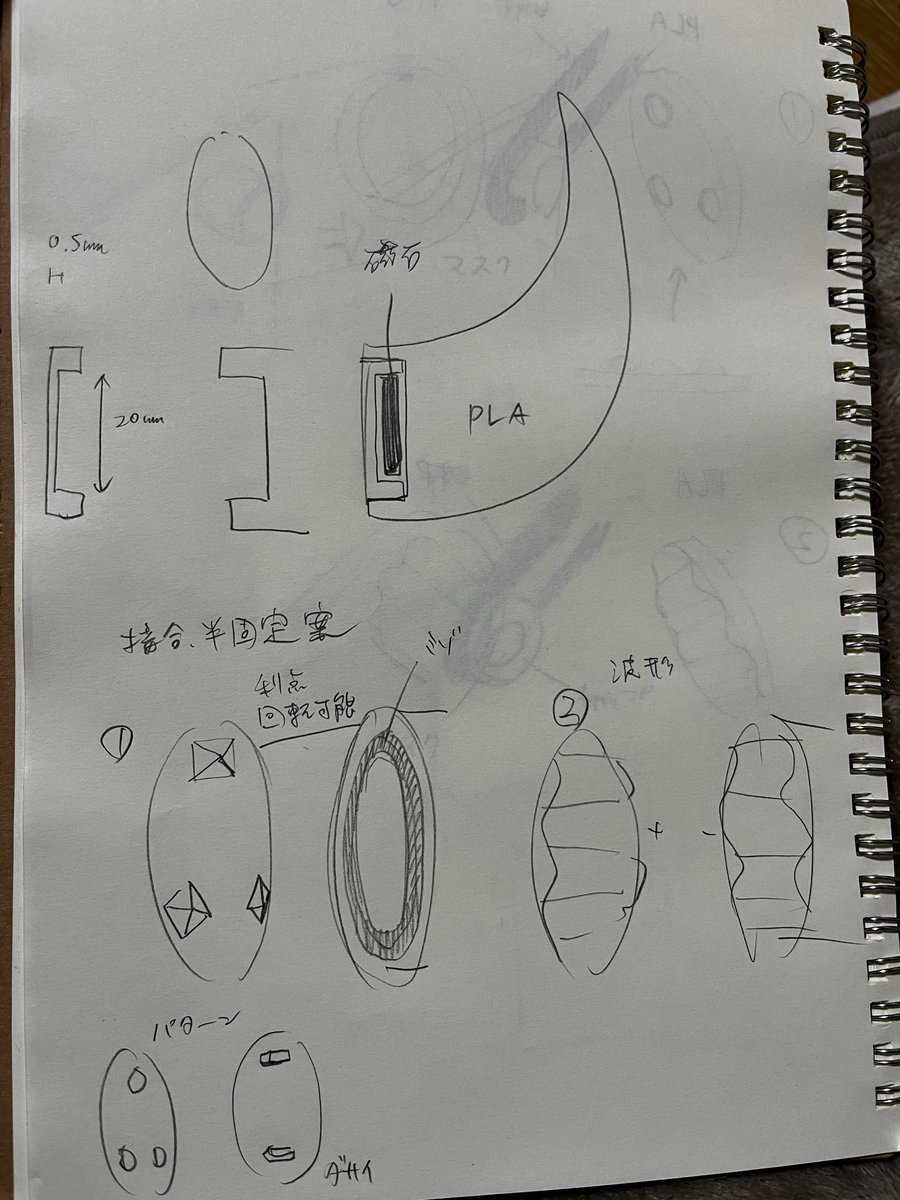 0.5mm
H
磁石
20mm
PLA
接合、半固定案
利点
回転可能
ミゾ
①
②
波形
+
-
パターン
ダサイ
PLA
マスク
①
PLA
②